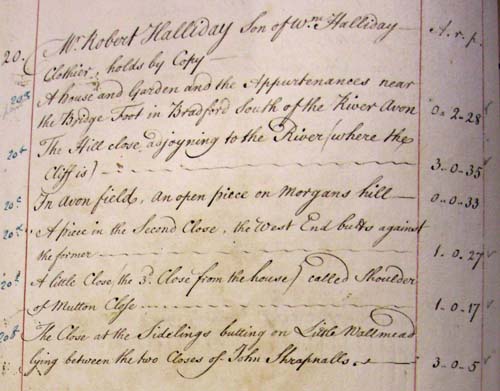 20. Mr. Robert Halliday Son of Wm. Halliday A. r. p.
Clothier, holds by Copy
20a A house and Garden and the Appurtenances near
the Bridge Foot in Bradford South of the River Avon 0-2-28
20b The Hill close adjoyning to the River (where the
Cliff is) 3-0-35
20c In Avon field, an open piece on Morgans hill 0-0-33
20d A piece in the Second Close, the West End butts against
the former 1-0-27
20e A little Close (the 3d. Close from the house) called Shoulder
of Mutton Close 1-0-17
20f The Close at the Sidelings butting on Little Wallmead
lying between the two Closes of John Shrapnalls 3-0-5